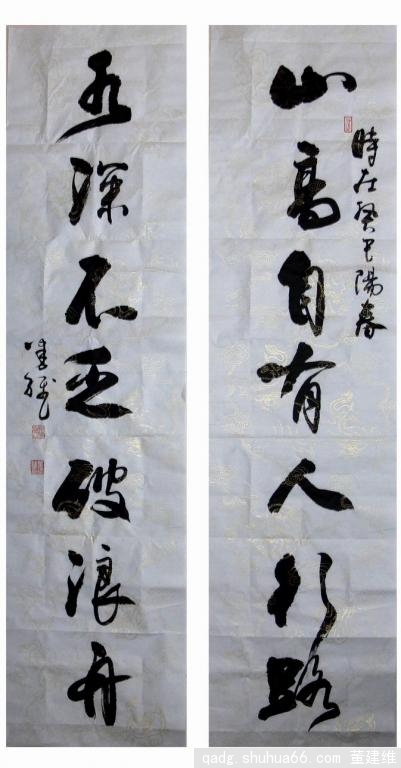 山高自有人行路
時在癸巳陽春
水深不乏破浪舟
qadg.shuhua66.com 董建维